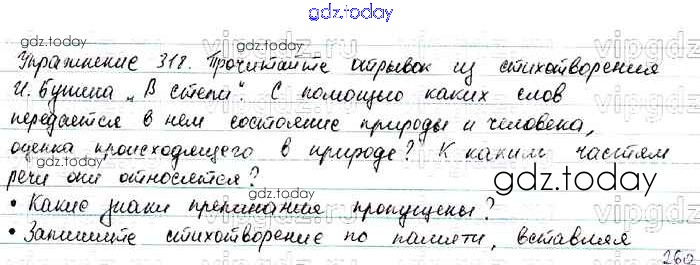 gdz.today
gdz.today
Упражнение 318. Прочитайте отрывок из стихотворения
И. Бунина „В степи". С помощью каких слов
передаётся в нем состояние природы и человека,
оценка происходящего в природе? К каким частям
речи они относятся?
gdz.today
gdz.today
• Какие знаки препинания пропущены?
gdz.today
• Запишите стихотворение по памяти, вставляя